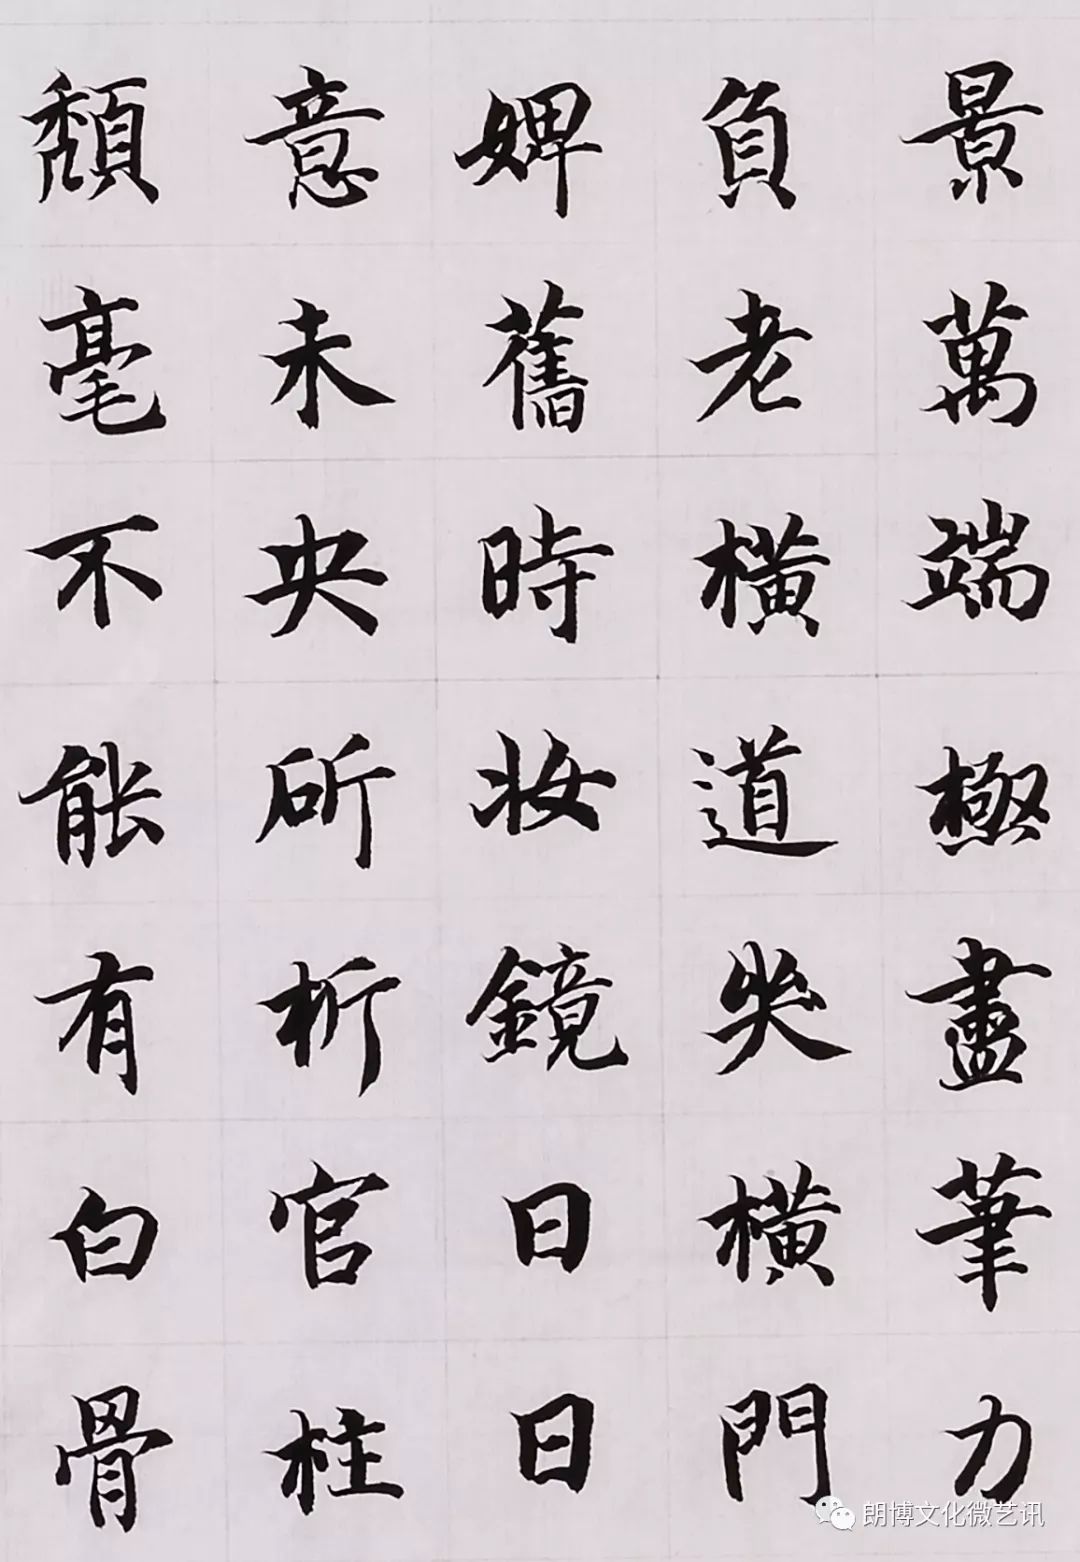 景萬端極盡筆力
負老橫道失橫門
婢舊時妝鏡日日
意未央斫析官柱
頹毫不能有白骨
朗博文化微艺讯